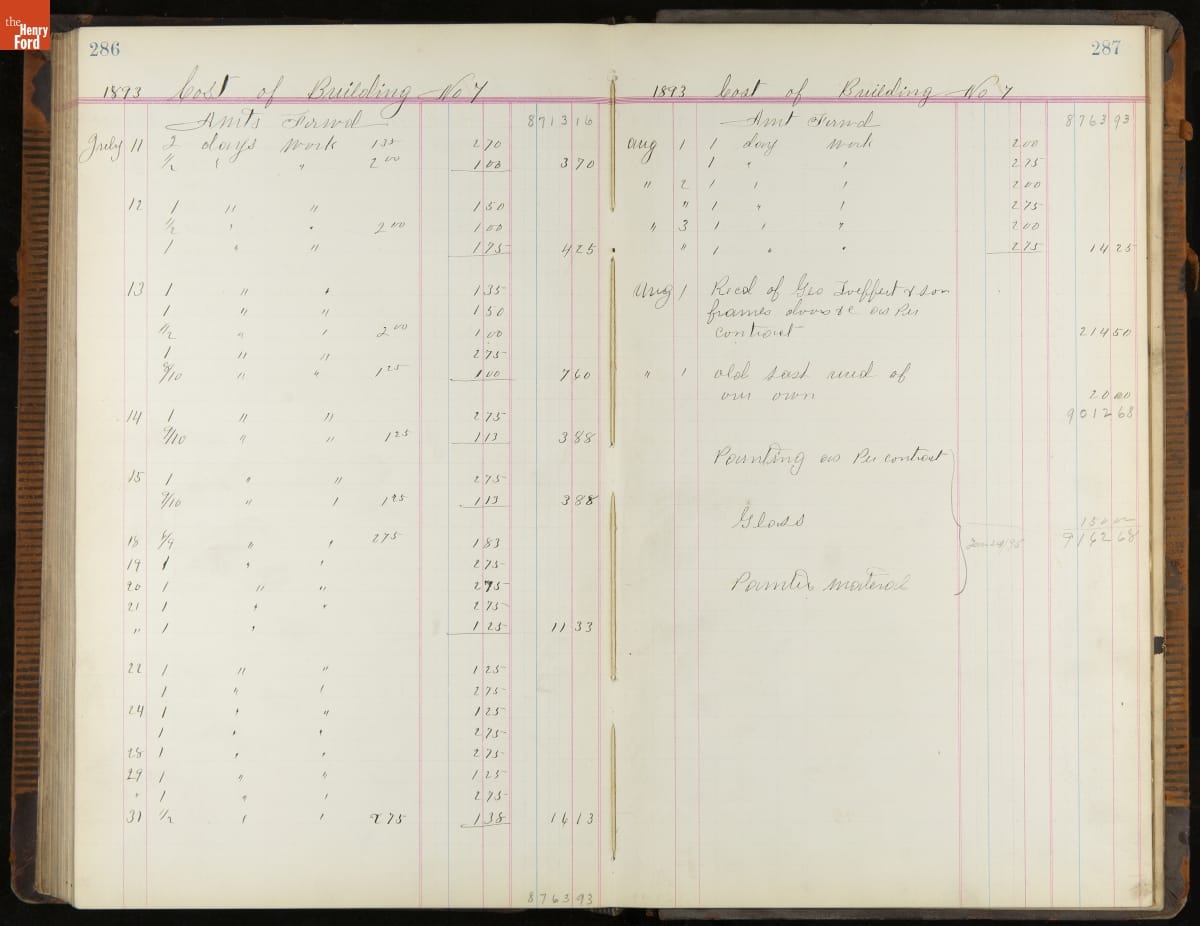 the
Henry
Ford
286
1893 Cost of Building No 7
Amts Forwd 8713 16
July 11 2 days work 1 35 2 70
1/2 " " 2 00 1 00 3 70
12 1 " " 1 50
1/2 " " 2 00 1 00
1 " " 1 75 4 25
13 1 " " 1 35
1 " " 1 50
1/2 " " 2 00 1 00
1 " " 2 75
8/10 " " 1 25 1 00 7 60
14 1 " " 2 75
9/10 " " 1 25 1 13 3 88
15 1 " " 2 75
9/10 " " 1 25 1 13 3 88
18 6/9 " " 2 75 1 83
19 1 " " 2 75
20 1 " " 2 75
21 1 " " 2 75
" 1 " 1 25 11 33
22 1 " " 1 25
1 " " 2 75
24 1 " " 1 25
1 " " 2 75
28 1 " " 2 75
29 1 " " 1 25
" 1 " " 2 75
31 1/2 " " 2 75 1 38 16 13
8763 93
287
1893 Cost of Building No 7
Amt Forwd 8763 93
Aug 1 1 day work 2 00
1 " " 2 75
" 2 1 " " 2 00
" 1 " " 2 75
" 3 1 " " 2 00
" 1 " " 2 75 14 25
Aug 1 Recd of Geo & son
frames doors &c as Per
contract 214 50
" 1 old sash used of
our own 20 00
9012 68
Painting as Per contract
Glass 150 00
9162 68
Painter material